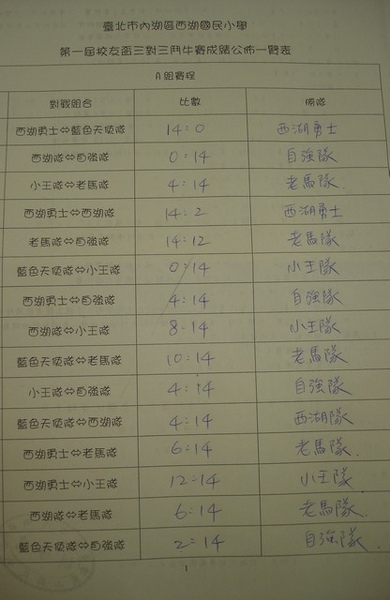 臺北市內湖區西湖國民小學
第一屆校友盃三對三鬥牛賽成績公佈一覽表
A組賽程
對戰組合 比數 勝隊
西湖勇士⇔藍色天使隊 14:0 西湖勇士
西湖隊⇔自強隊 0:14 自強隊
小王隊⇔老馬隊 4:14 老馬隊.
西湖勇士⇔西湖隊 14:2 西湖勇士
老馬隊⇔自強隊 14:12 老馬隊
藍色天使隊⇔小王隊 0:14 小王隊
西湖勇士⇔自強隊 4:14 自強隊
西湖隊⇔小王隊 8:14 小王隊
藍色天使隊⇔老馬隊 10:14 老馬隊
小王隊⇔自強隊 4:14 自強隊
藍色天使隊⇔西湖隊 4:14 西湖隊
西湖勇士⇔老馬隊 6:14 老馬隊.
西湖勇士⇔小王隊 12:14 小王隊
西湖隊⇔老馬隊 6:14 老馬隊.
藍色天使隊⇔自強隊 2:14 自強隊.
1